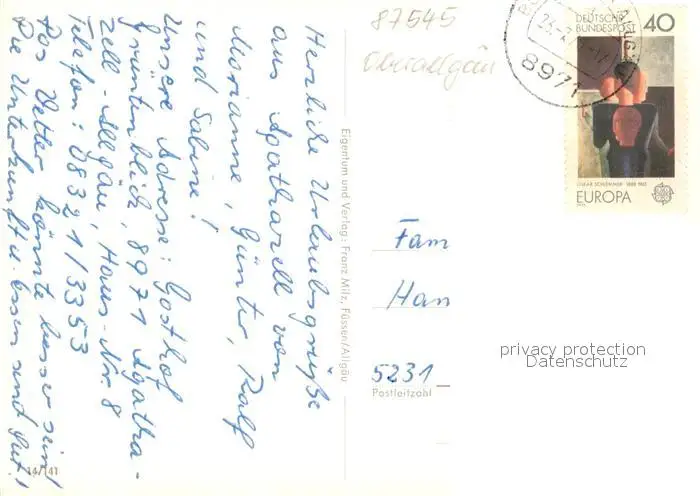 Herzliche Urlaubsgrüße
aus Agatharell von
Marianne, Günter, Ralf
und Sabine!
Unsere Adresse: Gasthof
Grüntenblick, 8971 Agatha-
zell-Allgäu, Haus-Nr. 8
Telefon: 08321/3353
Das Wetter könnte besser sein!
Die Unterkunft u. Essen sind gut!
14/141
Eigentum und Verlag: Franz Milz, Füssen/Allgäu
87545
Oberallgäu
8971
DEUTSCHE
BUNDESPOST 40
OSKAR SCHLEMMER 1888-1943
EUROPA
Fam
Han
5231
Postleitzahl
privacy protection
Datenschutz